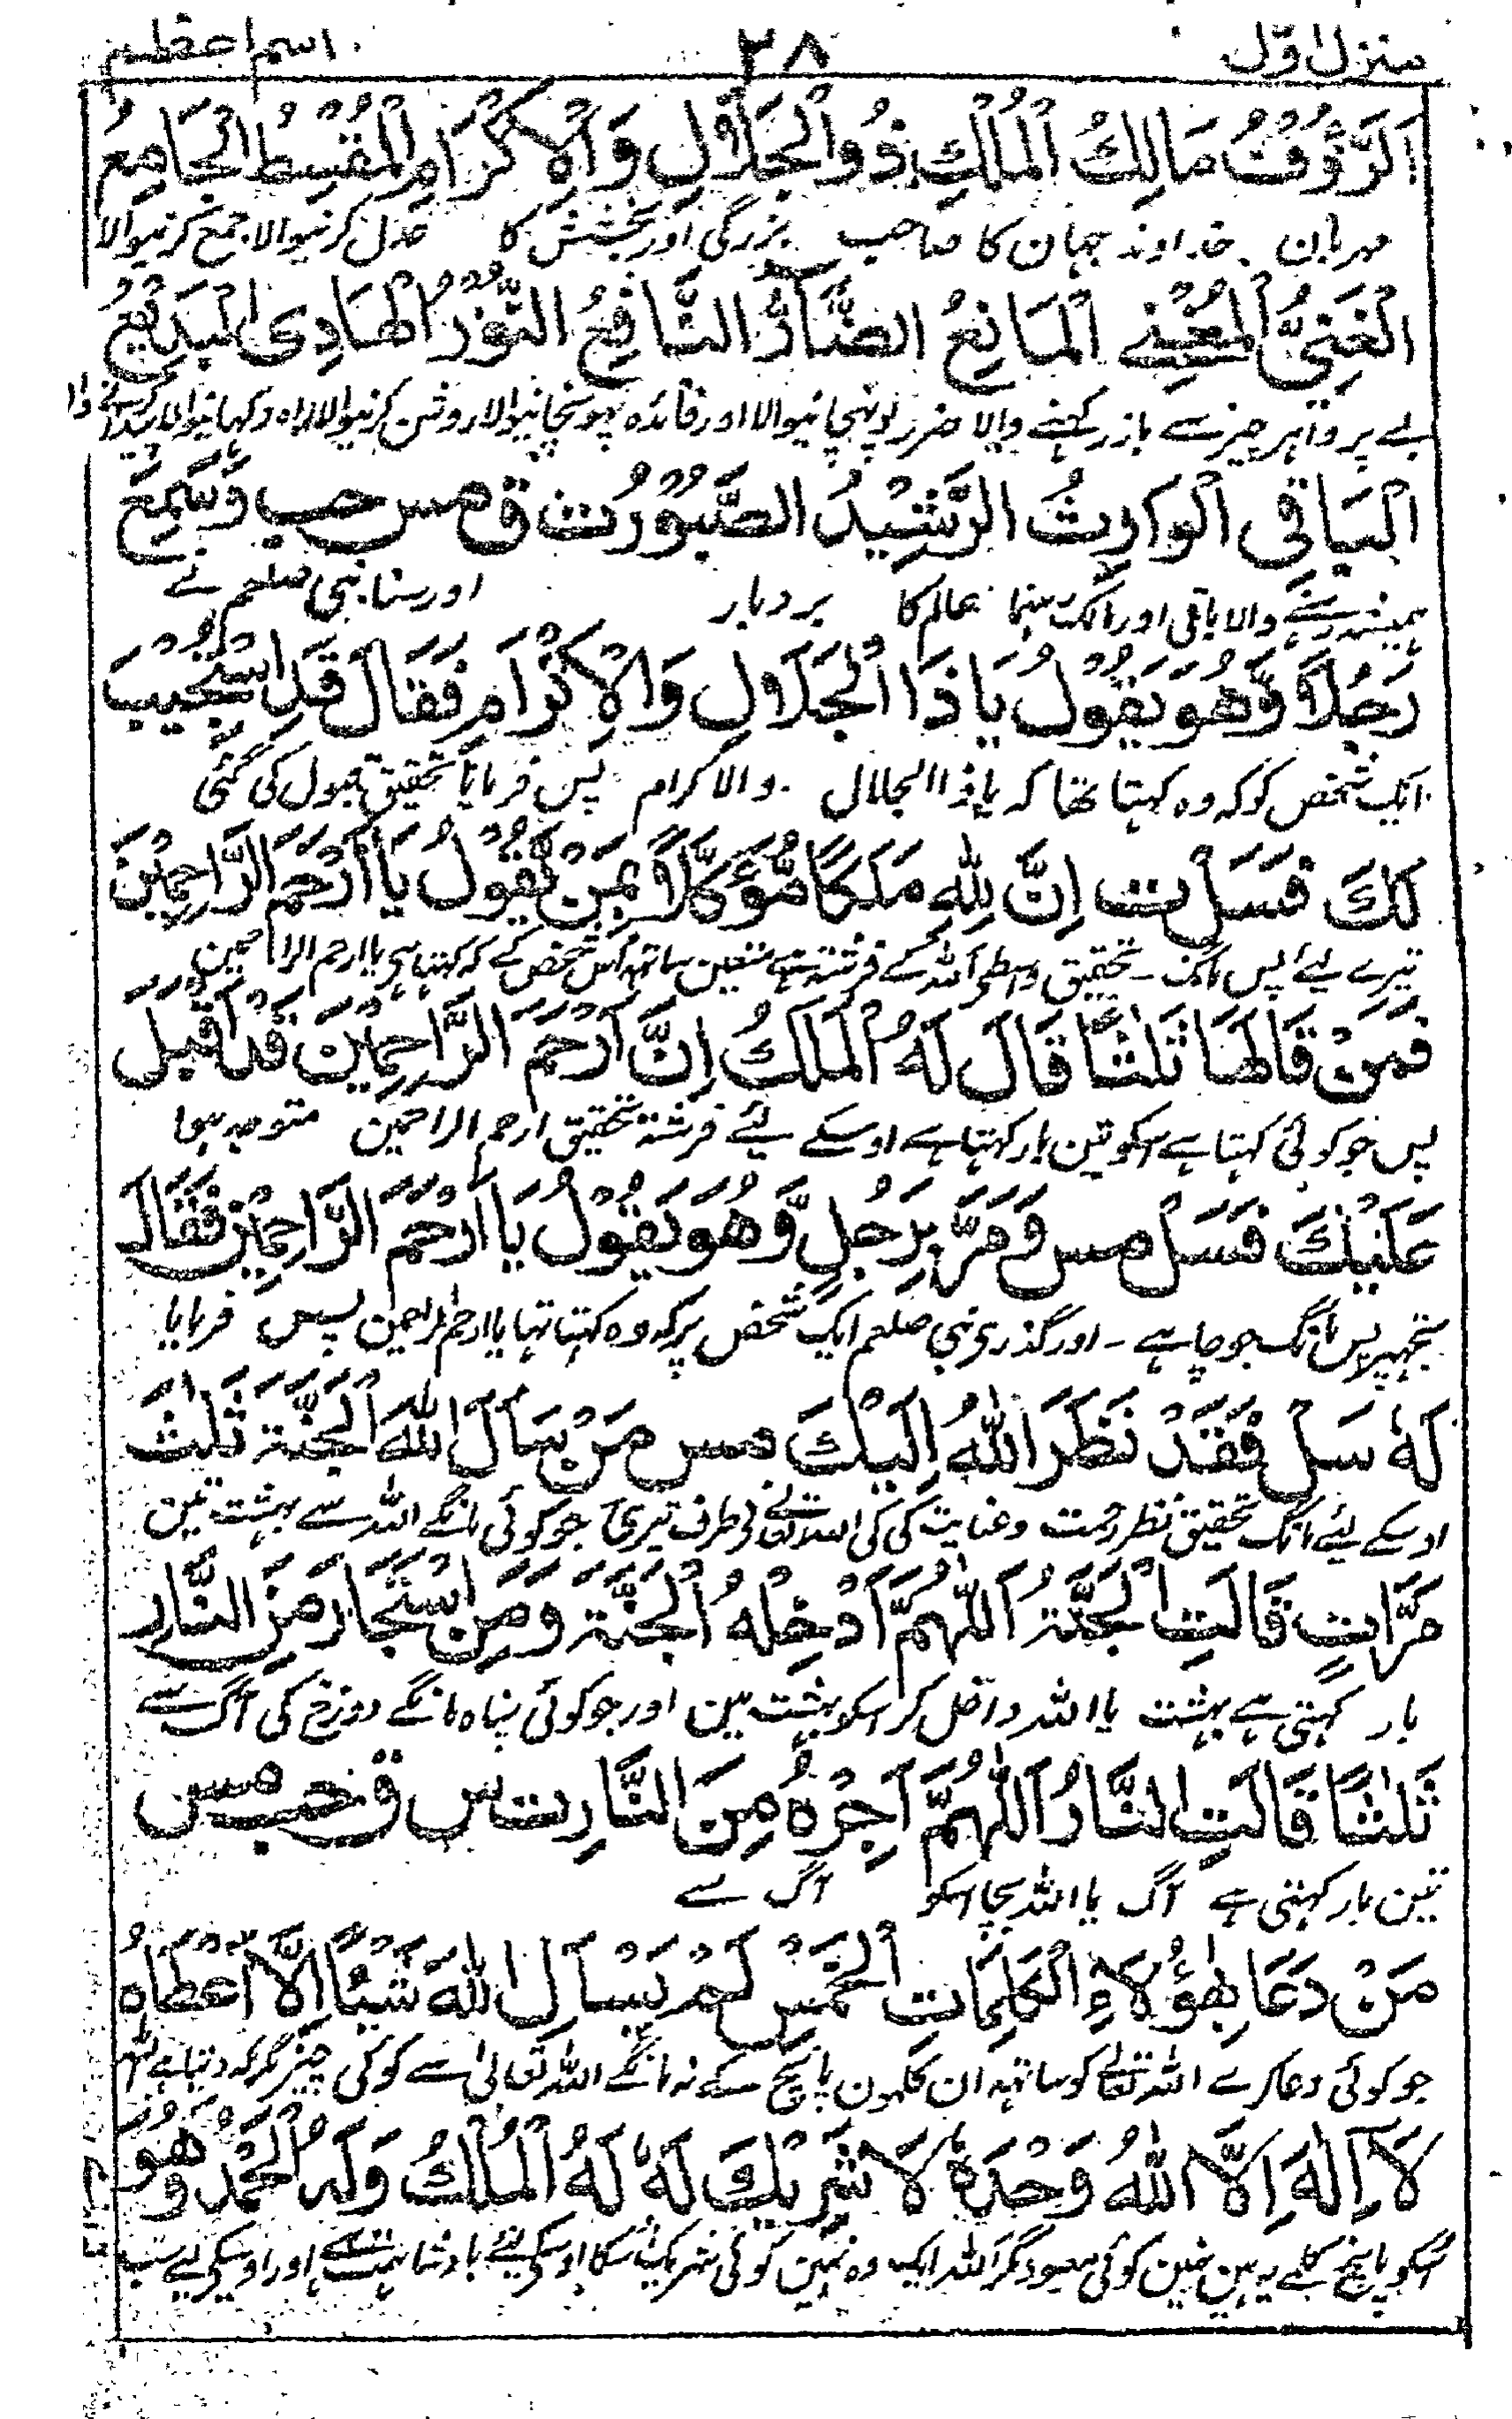 منزل اوّل ۲۸ اسم اعظم
اَلرَّؤُفُ مَالِكُ الْمُلْكِ ذُو الْجَلَالِ وَالْاِكْرَامِ الْمُقْسِطُ الْجَامِعُ
مہربان ۔ خداوند جہان کا صاحب بزرگی اور بخشش کا عدل کرنیوالا جمع کرنیوالا
الْغَنِيُّ الْمُغْنِي الْمَانِعُ الضَّآرُّ النَّافِعُ النُّوْرُ الْهَادِي الْبَدِيْعُ
بے پروا ہر چیز سے باز رکھنے والا ضرر پونہچانیوالا اور فائدہ پہونچانیوالا روشن کرنیوالا راہ دکہانیوالا
الْبَاقِي الْوَارِثُ الرَّشِيْدُ الصَّبُوْرُ ت ق مس حب وَسَمِعَ
ہمیشہ رہنے والا باقی اور مالک رہنما عالم کا بردبار اور سنا نبی صلعم نے
رَجُلًا وَّهُوَ يَقُوْلُ يَا ذَا الْجَلَالِ وَالْاِكْرَامِ فَقَالَ قَدِ اسْتُجِيْبَ
ایک شخص کو کہ وہ کہتا تھا کہ یا ذا الجلال ۔ والاکرام پس فرمایا تحقیق قبول کی گئی
لَكَ فَسَلْ ت اِنَّ لِلّٰهِ مَلَكًا مُّؤَكَّلًا بِمَنْ يَّقُوْلُ يَا اَرْحَمَ الرَّاحِمِيْنَ
تیرے لیے پس مانگ ۔ تحقیق واسطے اللہ کے فرشتہ ہے متعین ساتھ اس شخص کے کہ کہتا ہی یا ارحم الراحمین
فَمَنْ قَالَهَا ثَلٰثًا قَالَ لَهُ الْمَلَكُ اِنَّ اَرْحَمَ الرَّاحِمِيْنَ قَدْ اَقْبَلَ
پس جو کوئی کہتا ہے اسکو تین بار کہتا ہے اوسکے لیے فرشتہ تحقیق ارحم الراحمین متوجہ ہوا
عَلَيْكَ فَسَلْ مس وَمَرَّ بِرَجُلٍ وَّهُوَ يَقُوْلُ يَا اَرْحَمَ الرَّاحِمِيْنَ فَقَالَ
تجہپر پس مانگ جو چاہے ۔ اور گذری نبی صلعم ایک شخص پر کہ وہ کہتا تہا یا ارحم الراحمین پس فرمایا
لَهٗ سَلْ فَقَدْ نَظَرَ اللّٰهُ اِلَيْكَ مس مَنْ سَاَلَ اللّٰهَ الْجَنَّةَ ثَلٰثَ
اوسکے لیے مانگ تحقیق نظر رحمت و عنایت کی کی اللہ تعالے نے طرف تیری جو کوئی مانگے اللہ سے بہشت تین
مَرَّاتٍ قَالَتِ الْجَنَّةُ اَللّٰهُمَّ اَدْخِلْهُ الْجَنَّةَ وَمَنِ اسْتَجَارَ مِنَ النَّارِ
بار کہتی ہے بہشت یا اللہ داخل کر اسکو بہشت مین اور جو کوئی پناہ مانگے دوزخ کی آگ سے
ثَلٰثًا قَالَتِ النَّارُ اَللّٰهُمَّ اَجِرْهُ مِنَ النَّارِ ت س ق حب مس
تین بار کہتی ہے آگ یا اللہ بچا اسکو آگ سے
مَنْ دَعَا بِهٰؤُلَاءِ الْكَلِمَاتِ الْخَمْسِ لَمْ يَسْاَلِ اللّٰهَ شَيْئًا اِلَّا اَعْطَاهُ
جو کوئی دعا کرے اللہ تعالے کو ساتہہ ان کلمون پانچ کے نہ مانگے اللہ تعالیٰ سے کوئی چیز مگر کہ دیتا ہے
لَا اِلٰهَ اِلَّا اللّٰهُ وَحْدَهٗ لَا شَرِيْكَ لَهٗ لَهُ الْمُلْكُ وَلَهُ الْحَمْدُ وَهُوَ
اسکو پانچ کلمے یہ ہین نہین کوئی معبود مگر اللہ ایک وہ نہین کوئی شریک اسکا اوسکی لیے بادشاہت ہے اور اوسکی لیے سب